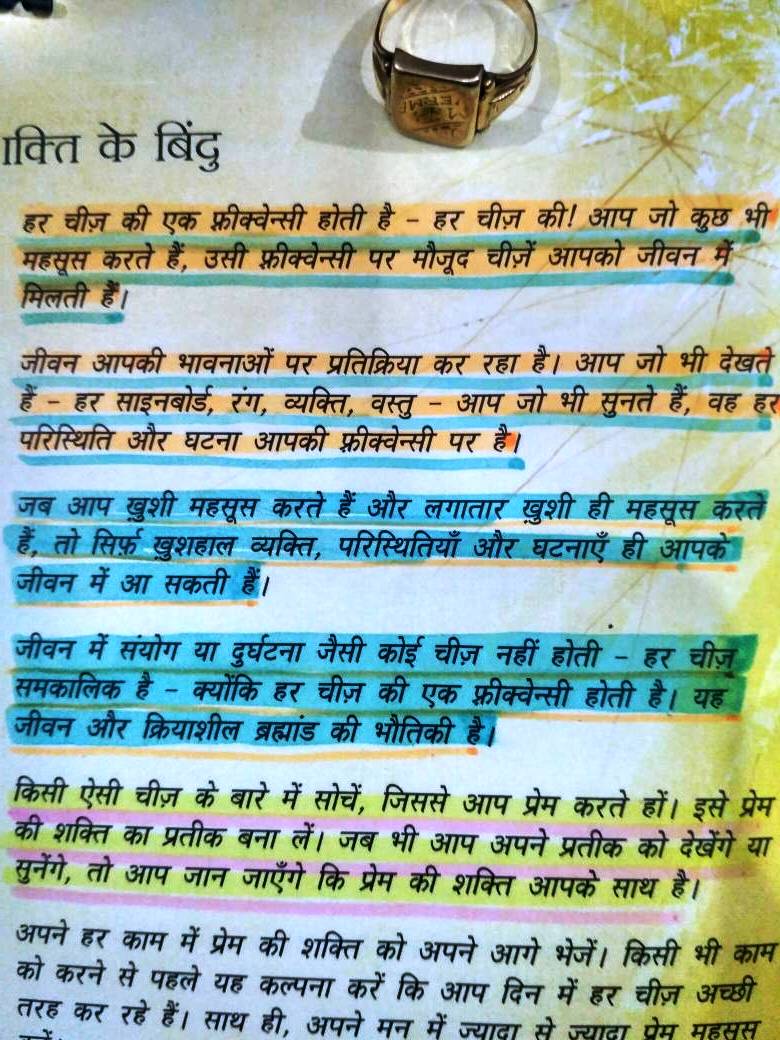 के बिंदु
हर चीज़ की एक फ़्रीक्वेन्सी होती है - हर चीज़ की! आप जो कुछ भी
महसूस करते हैं, उसी फ़्रीक्वेन्सी पर मौजूद चीज़ें आपको जीवन में
मिलती हैं।
जीवन आपकी भावनाओं पर प्रतिक्रिया कर रहा है। आप जो भी देखते
हैं - हर साइनबोर्ड, रंग, व्यक्ति, वस्तु - आप जो भी सुनते हैं, वह हर
परिस्थिति और घटना आपकी फ़्रीक्वेन्सी पर है।
जब आप ख़ुशी महसूस करते हैं और लगातार ख़ुशी ही महसूस करते
हैं, तो सिर्फ़ ख़ुशहाल व्यक्ति, परिस्थितियाँ और घटनाएँ ही आपके
जीवन में आ सकती हैं।
जीवन में संयोग या दुर्घटना जैसी कोई चीज़ नहीं होती - हर चीज़
समकालिक है - क्योंकि हर चीज़ की एक फ़्रीक्वेन्सी होती है। यह
जीवन और क्रियाशील ब्रह्मांड की भौतिकी है।
किसी ऐसी चीज़ के बारे में सोचें, जिससे आप प्रेम करते हों। इसे प्रेम
की शक्ति का प्रतीक बना लें। जब भी आप अपने प्रतीक को देखेंगे या
सुनेंगे, तो आप जान जाएँगे कि प्रेम की शक्ति आपके साथ है।
अपने हर काम में प्रेम की शक्ति को अपने आगे भेजें। किसी भी काम
को करने से पहले यह कल्पना करें कि आप दिन में हर चीज़ अच्छी
तरह कर रहे हैं। साथ ही, अपने मन में ज्यादा से ज्यादा प्रेम महसूस